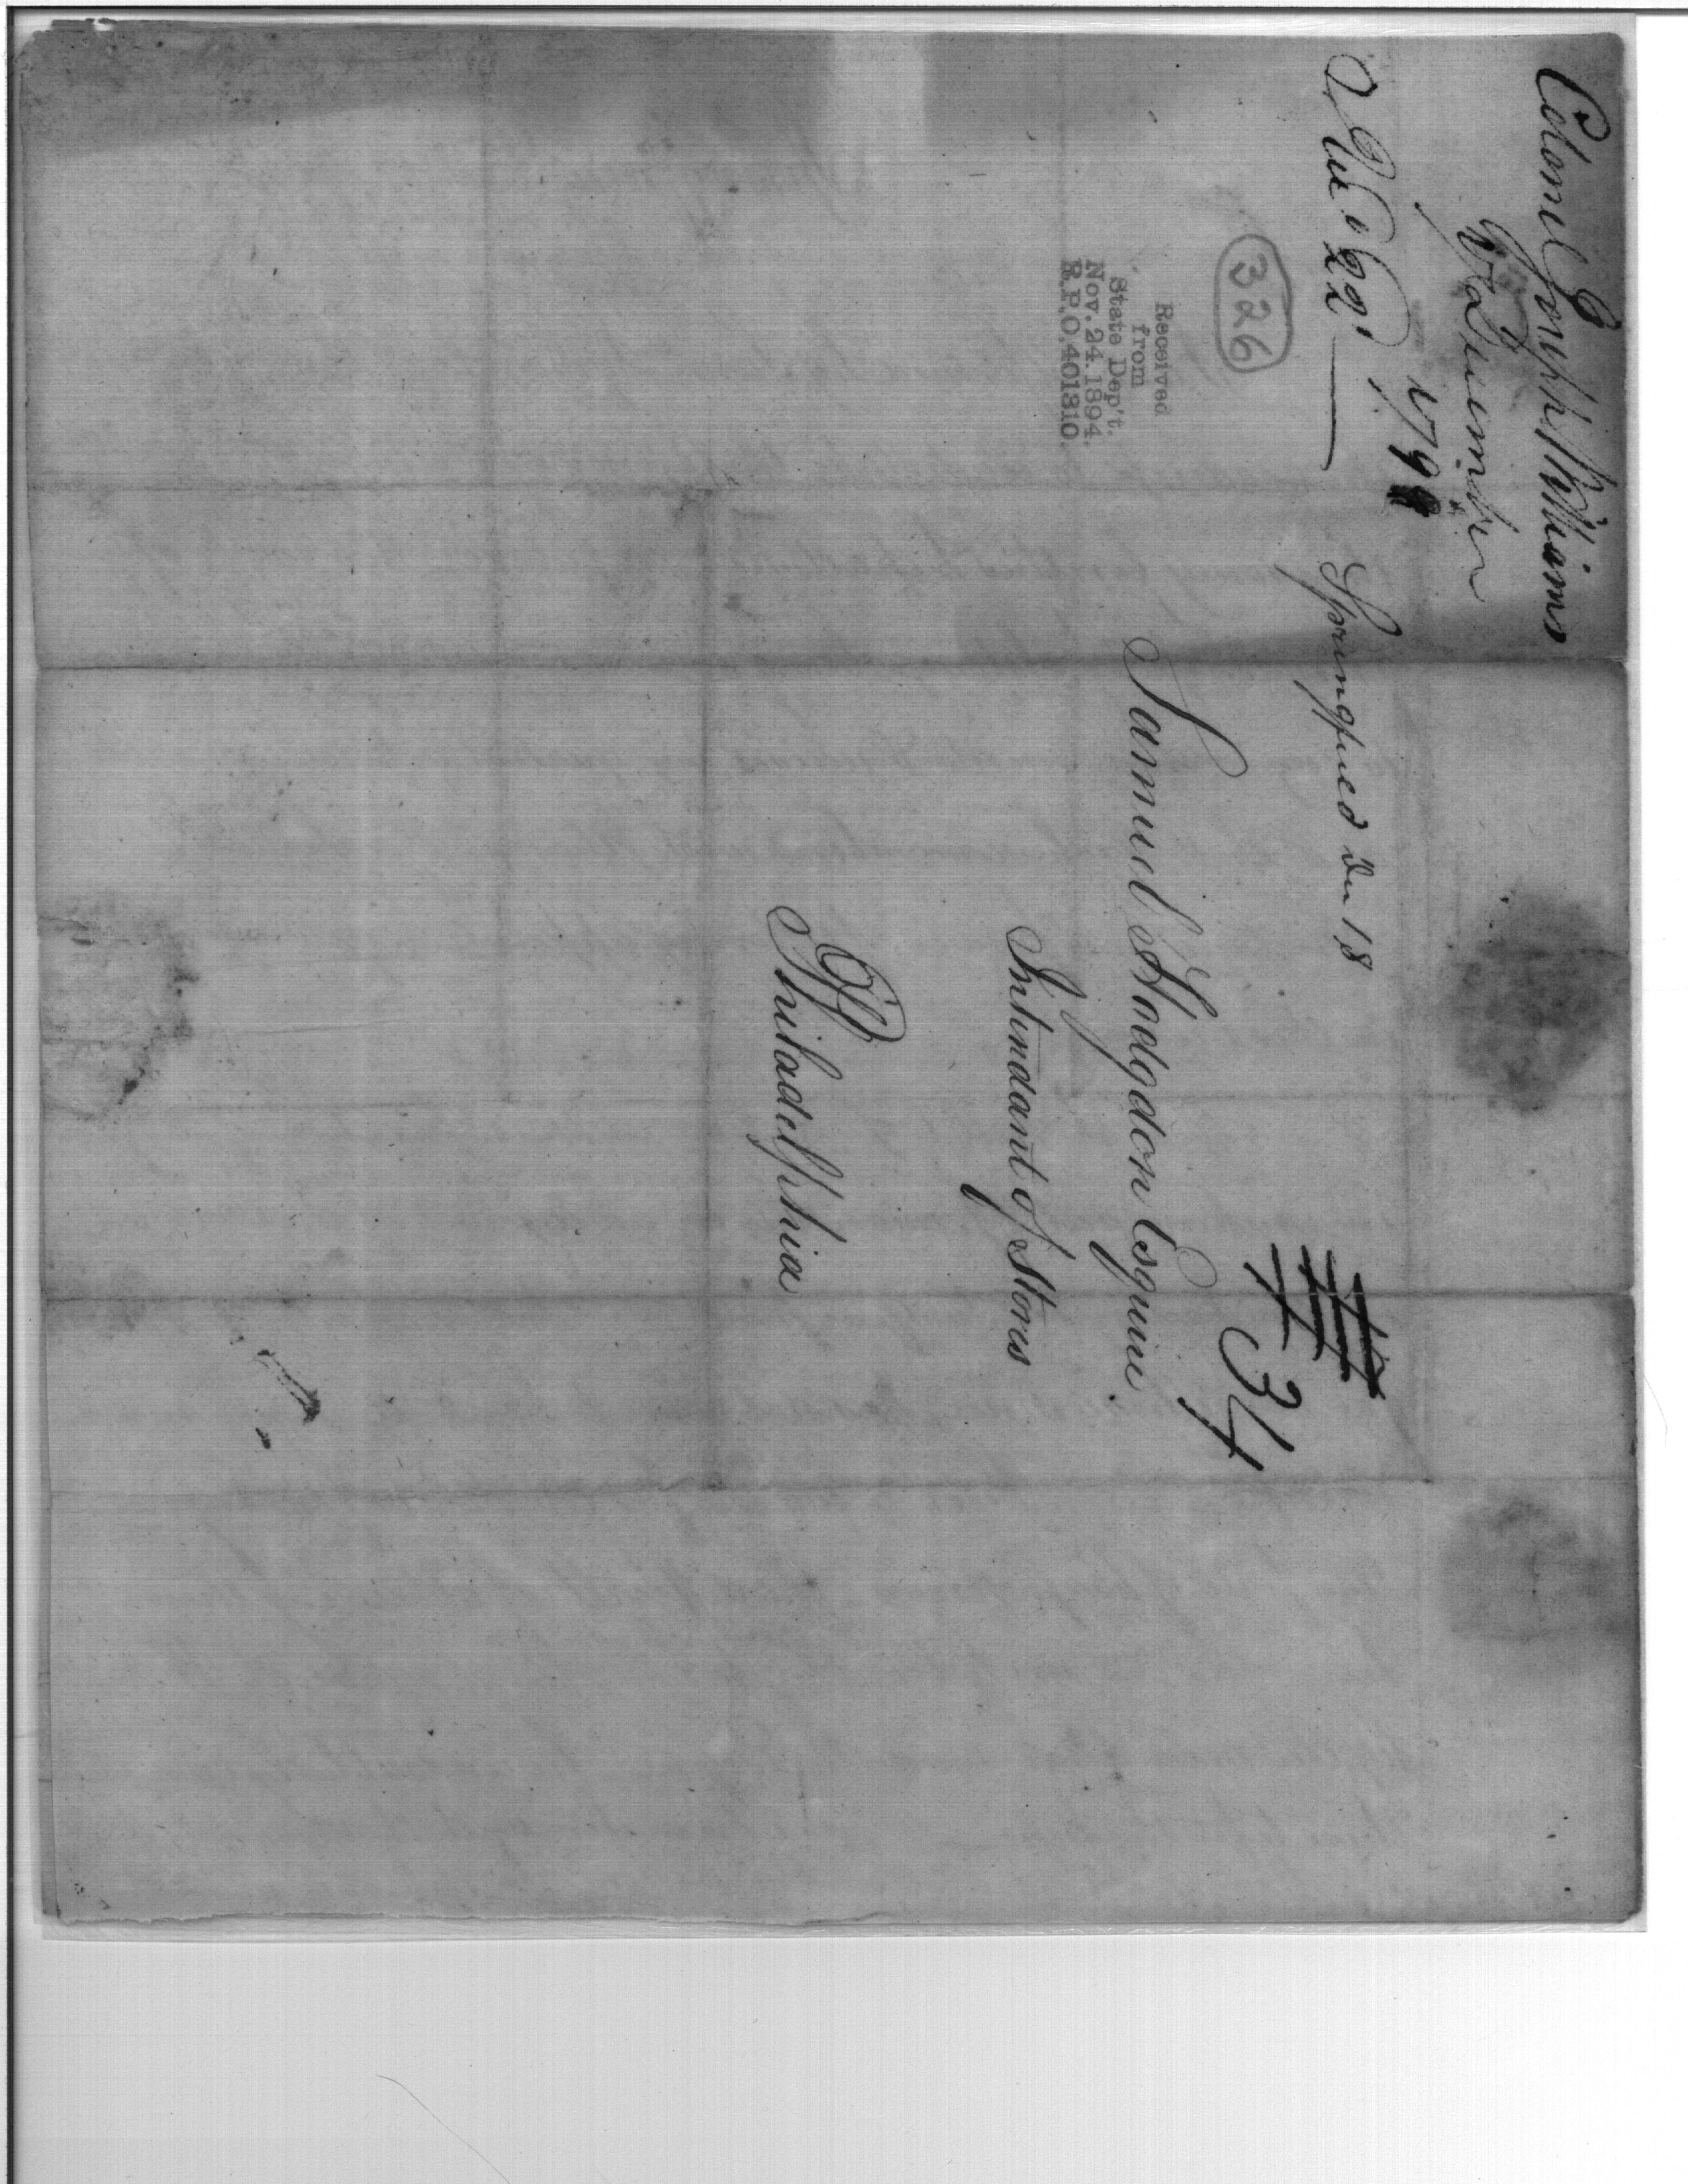 Colonel Joseph Williams
9th December
1798
Recd 22d
Springfield Dec 18
34
326
Received
from
State Dep't.
Nov. 24. 1894.
R.P.O. 401310.
Samuel Hodgdon Esquire
Intendant of Stores
Philadelphia